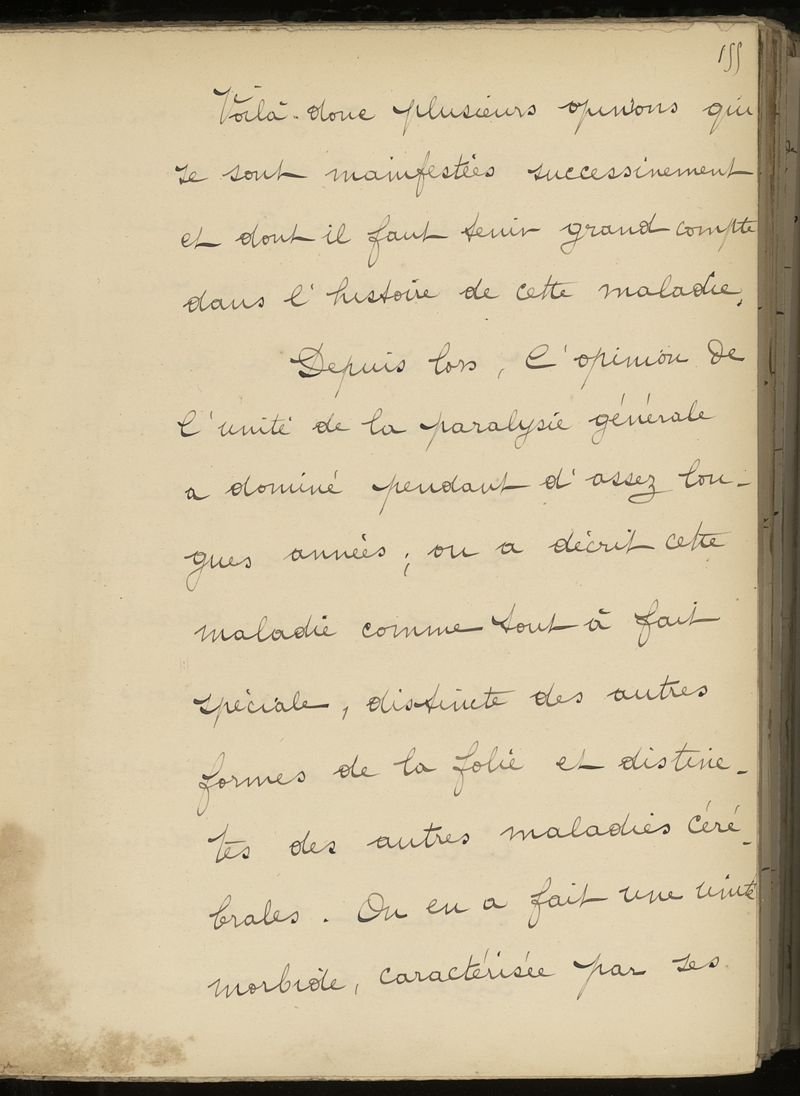 155
Voilà donc plusieurs opinions qui
se sont manifestées successivement
et dont il faut tenir grand compte
dans l'histoire de cette maladie.
Depuis lors, l'opinion de
l'unité de la paralysie générale
a dominé pendant d'assez lon-
gues années ; on a décrit cette
maladie comme tout à fait
spéciale, distincte des autres
formes de la folie et distinc-
tes des autres maladies céré-
brales. On en a fait une unité
morbide, caractérisée par ses